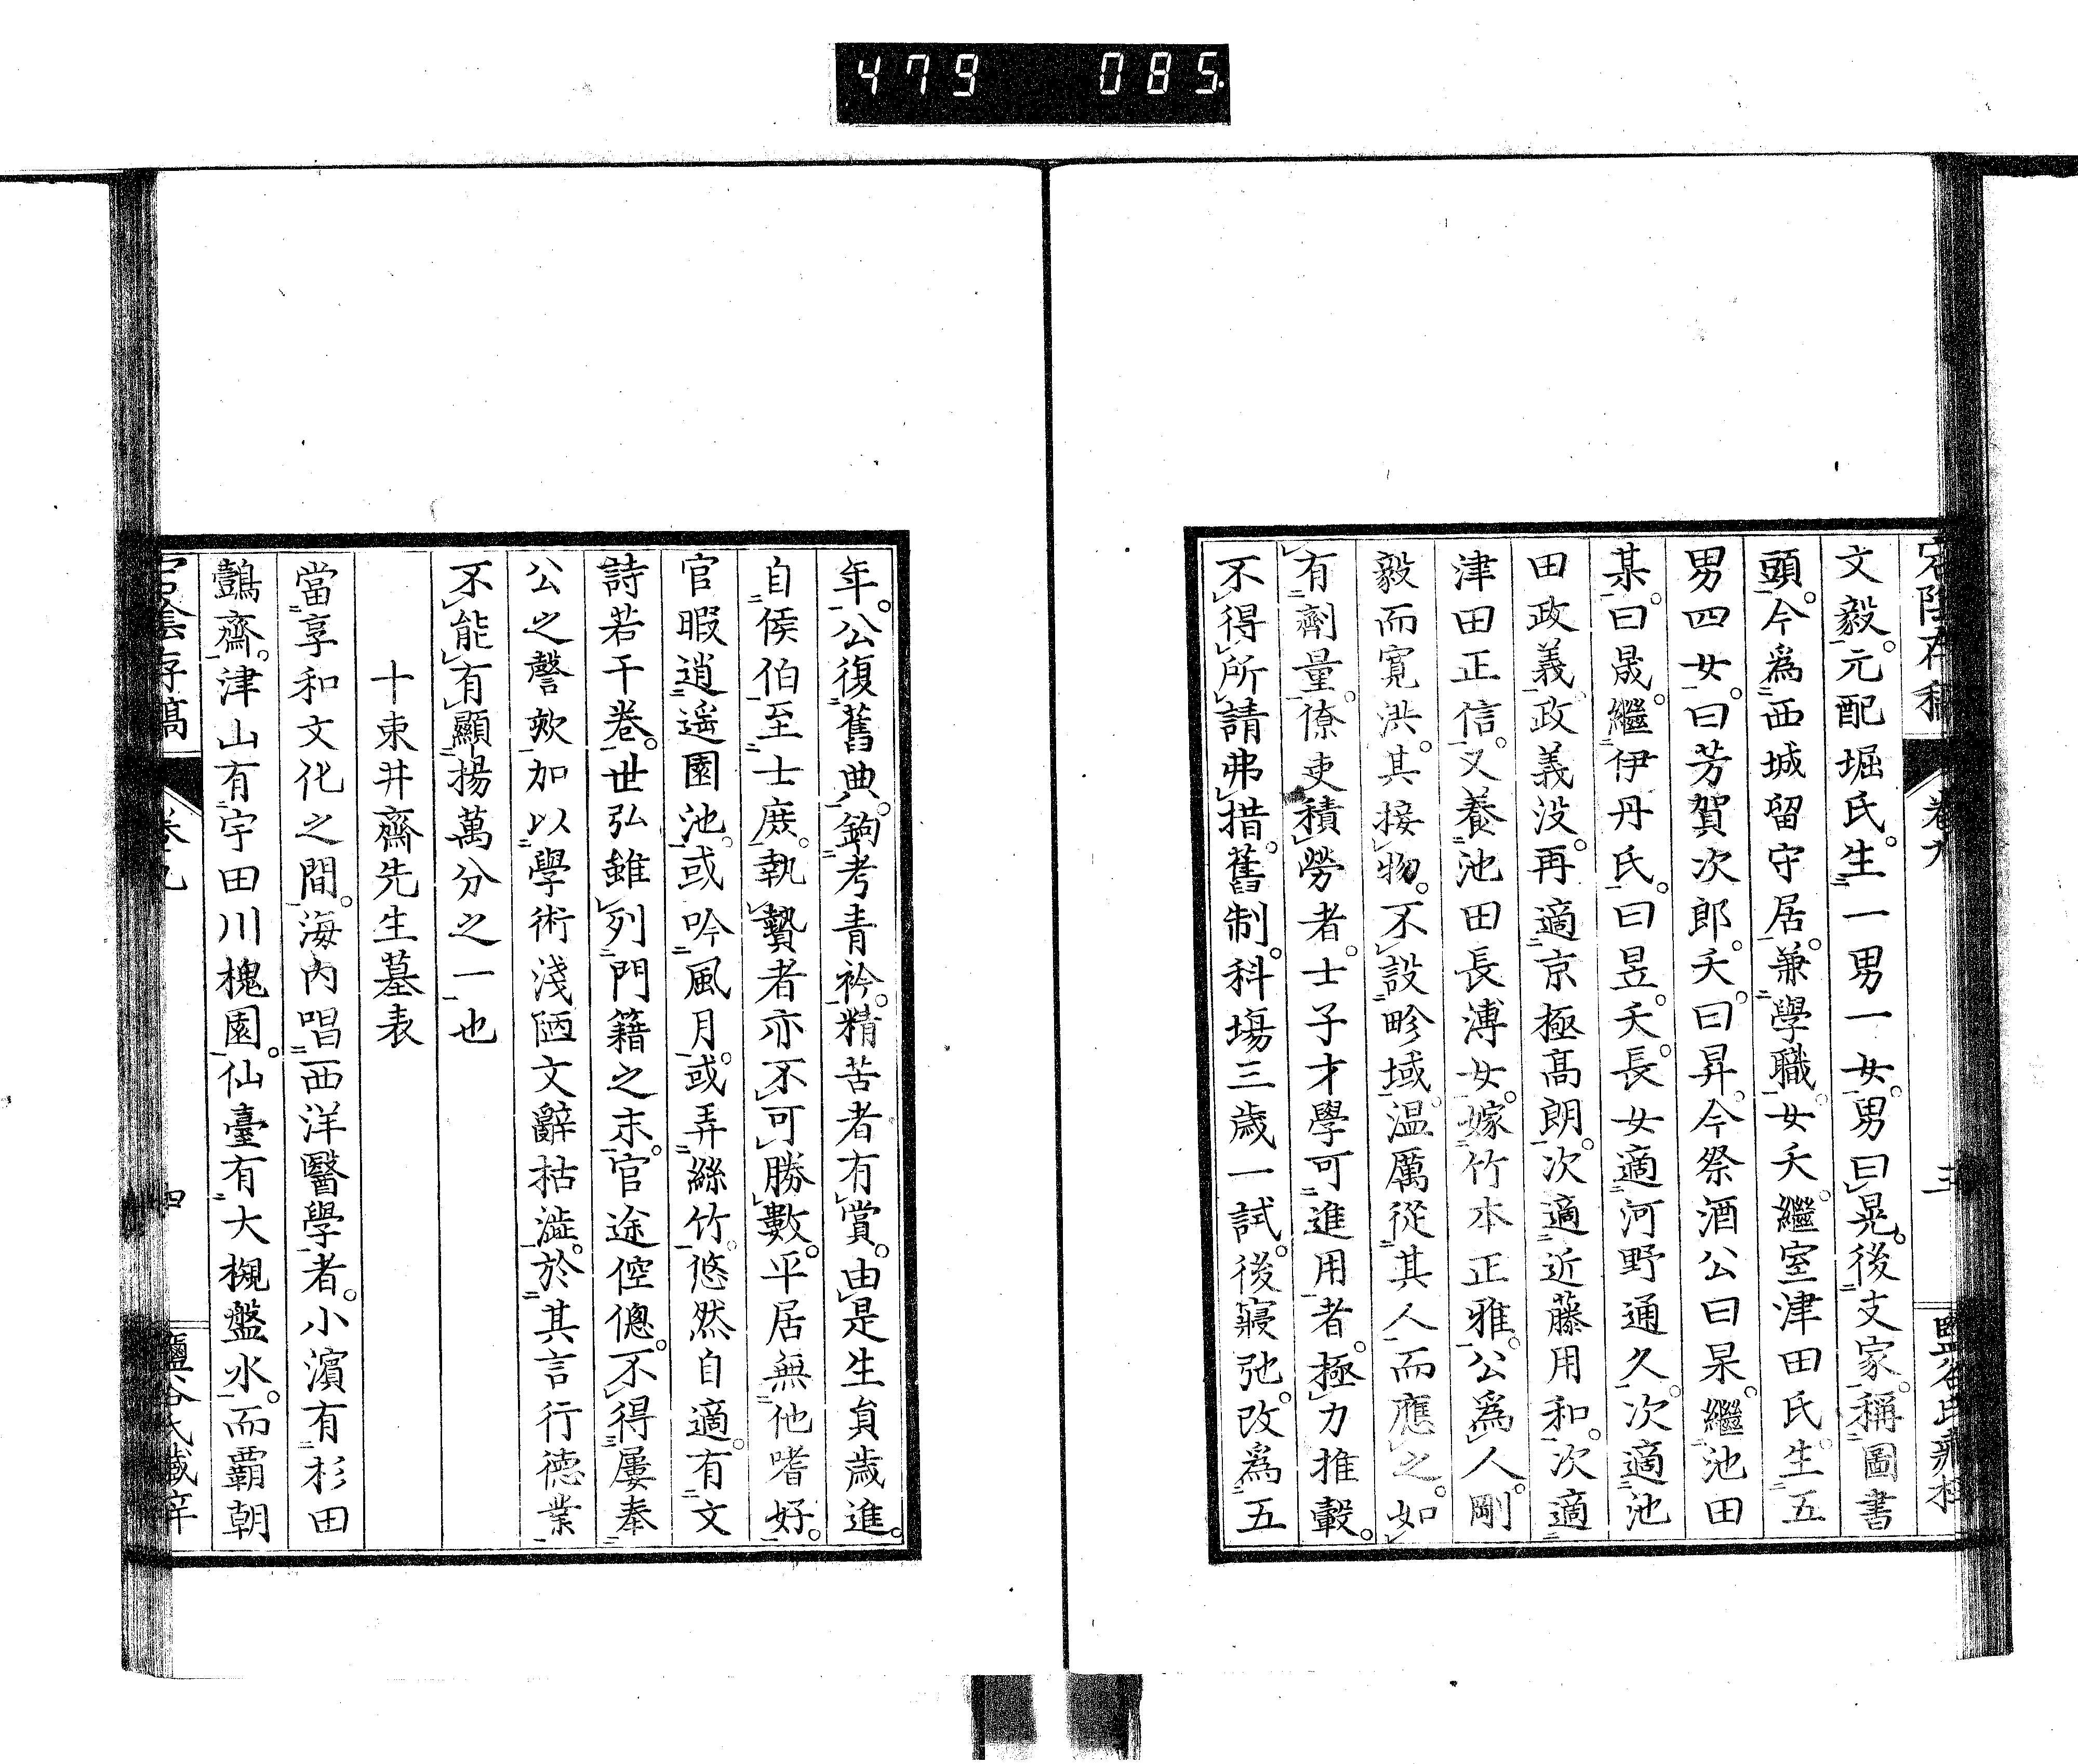 479 085
文毅。元配堀氏。生一男一女。男曰晃。後支家。稱圖書
頭。今爲西城留守居。兼學職。女夭。繼室津田氏。生五
男四女。曰芳賀次郎。夭。曰昇。今祭酒公曰杲。繼池田
某。曰晟。繼伊丹氏。曰昱。夭。長女適河野通久。次適池
田政義。政義没。再適京極高朗。次適近藤用和。次適
津田正信。又養池田長溥女。嫁竹本正雅。公爲人。剛
毅而寬洪。其接物。不設畛域。温厲從其人而應之。如
有劑量。僚吏積勞者。士子才學可進用者。極力推轂。
不得所請弗措。舊制。科塲三歲一試。後寢弛。改爲五
年。公復舊典。鉤考青衿。精苦者有賞。由是生員歲進。
自侯伯至士庶。執贄者亦不可勝數。平居無他嗜好。
官暇逍遥園池。或吟風月。或弄絲竹。悠然自適。有文
詩若干卷。世弘雖列門籍之末。官途倥偬。不得屢奉
公之謦欬。加以學術淺陋文辭枯澁。於其言行德業
不能有顯揚萬分之一也
十束井齋先生墓表
當享和文化之間。海內唱西洋醫學者。小濱有杉田
鷧齋。津山有宇田川槐園。仙臺有大槻盤水。而覇朝
宕陰存稿 卷九 四 鹽谷氏藏梓